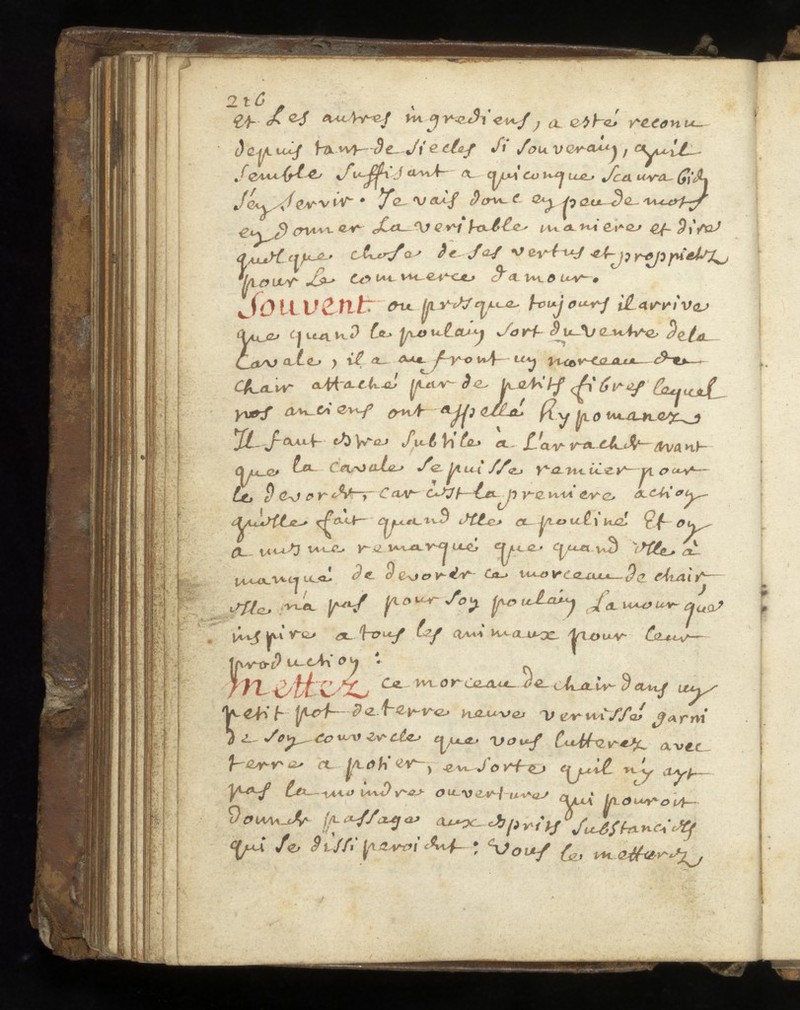 216
Et Les autres ingrediens, a esté reconu
depuis tant de siecles si souverain, quil
semble suffisant a quiconque scaura bien
s'en servir. Je vais donc en peu de mots
en donner La veritable maniere et dire
quelque chose de ses vertus et proprietez
pour Le commerce d'amour.
Souvent ou presque toujours il arrive
que quand le poulain sort du ventre dela
Cavale, il a au front un morceau de
chair attaché par de petits fibres lequel
nos anciens ont appellé hypomanez
Il faut estre subtile a L'arracher avant
que la cavale se puisse remüer pour
le devorer, car c'est la premiere action
qu'elle fait quand elle a pouliné Et on
a mesme remarqué que quand elle à
manqué de devorer ce morceau de chair,
elle n'a pas pour son poulain Lamour que
inspire a tous les animaux pour leur
production :
Mettez ce morceau de chair dans un
petit pot de terre neuve vernissé garni
de son couvercle que vous lutterez avec
terre a potier, en sorte quil n'y ayt
pas la moindre ouverture qui pouroit
donner passage aux esprits substanciels
qui se dissiperoient : Vous le metterez